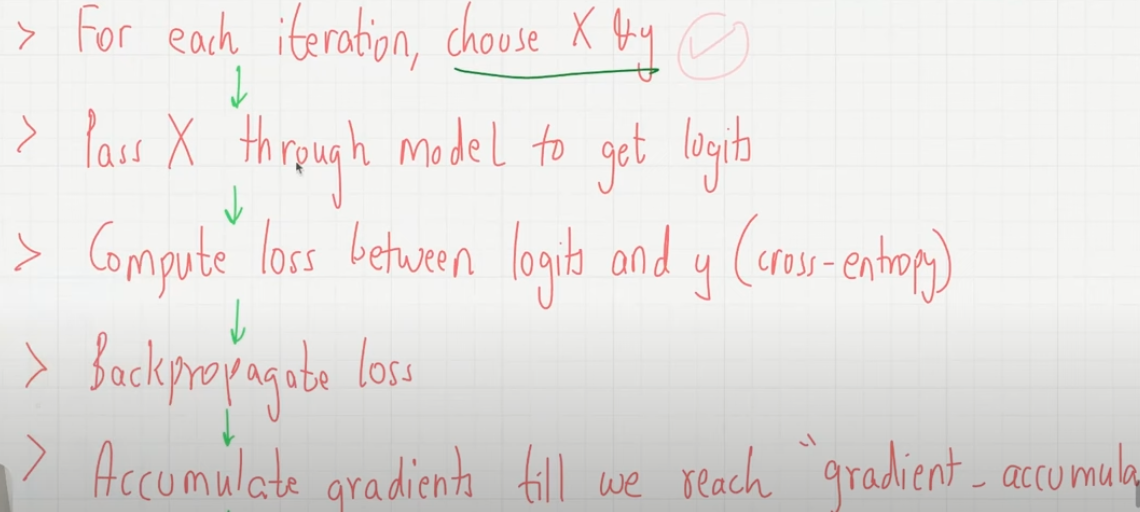 > For each iteration, choose X & y
> Pass X through model to get logits
> Compute loss between logits and y (cross-entropy)
> Backpropagate loss
> Accumulate gradients till we reach "gradient_accumula